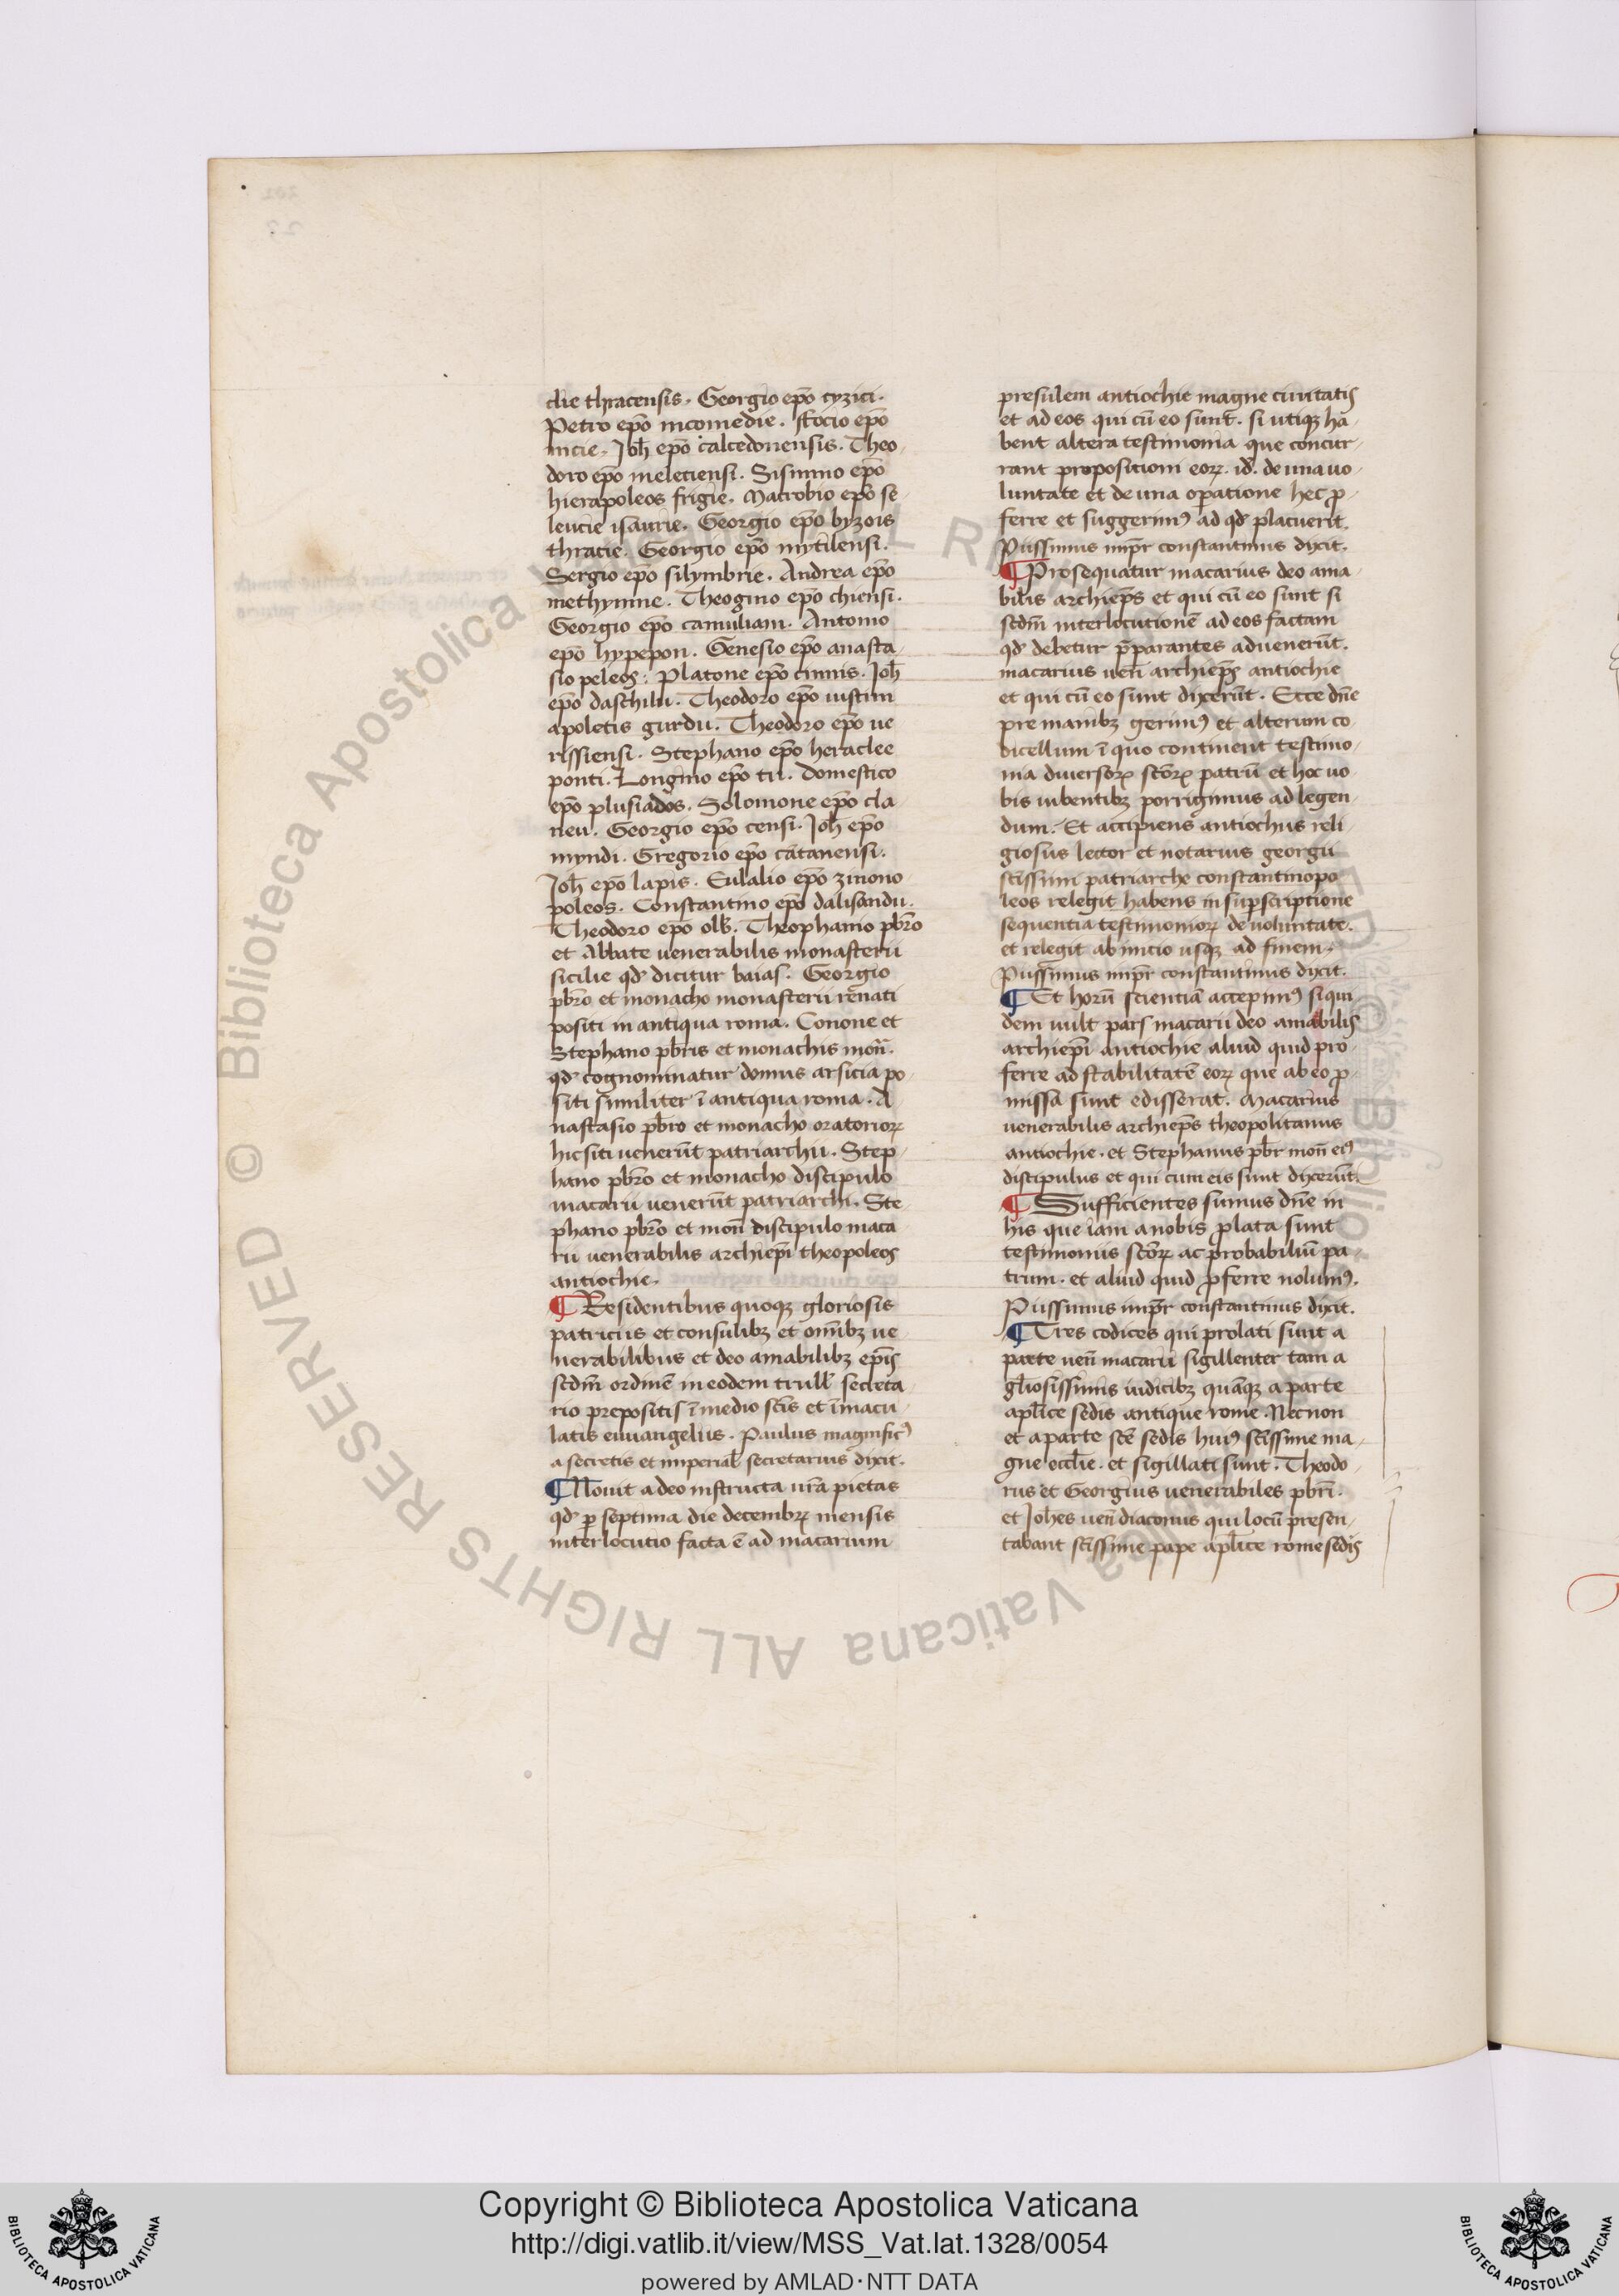 clie thracensis. Georgio ep̄o cyzici.
Petro ep̄o nicomedie. ffocio ep̄o
nicie. Joh̄ ep̄o calcedonensis. Theo
doro ep̄o meleciensi. Sisinnio ep̄o
hierapoleos frigie. Macrobio ep̄o se
leucie isaurie. Georgio ep̄o byzois
thracie. Georgio ep̄o mytilensi.
Sergio ep̄o silymbrie. Andrea ep̄o
methymne. Theogino ep̄o chiensi.
Georgio ep̄o camuliani. Antonio
ep̄o hypepon. Genesio ep̄o anasta
sio peleos. Platone ep̄o cinnis. Joh̄
ep̄o daschilii. Theodoro ep̄o iustini
apoletis gurdu. Theodoro ep̄o ue
rissiensi. Stephano ep̄o heraclee
ponti. Longino ep̄o tii. Domestico
ep̄o plusiados. Solomone ep̄o cla
neu. Georgio ep̄o censi. Joh̄ ep̄o
myndi. Gregorio ep̄o catanensi.
Joh̄ ep̄o lapis. Eulalio ep̄o zinono
poleos. Constantino ep̄o dalisandu.
Theodoro ep̄o olb̄. Theophanio pbr̄o
et Abbate uenerabilis monasterii
sicilie qd̓ dicitur baias. Georgio
pbr̄o et monacho monasterii renati
positi in antiqua roma. Conone et
Stephano pbr̄is et monachis mon̄.
qd̓ cognominatur domus arsicia po
siti similiter ī antiqua roma. A
nastasio pbr̄o et monacho oratorioꝝ
hic siti uenerūt patriarchii. Step
hano pbr̄o et monacho discipulo
macarii uenerūt patriarchi. Ste
phano pbr̄o et mon̄ discipulo maca
rii uenerabilis archiep̄i theopoleos
antiochie.
¶ Residentibus quoqꝫ gloriosis
patriciis et consulibꝫ et om̄ibꝫ ue
nerabilibus et deo amabilibꝫ ep̄is
scdm̄ ordinē in eodem trull̄ secreta
rio prepositis ī medio scīs et īmacu
latis euuangeliis. Paulus magnificꝰ
a secretis et imperial̄ secretarius dixit.
¶ Nouit a deo instructa ur̄a pietas
qd̓ ꝑ septima die decembꝝ mensis
interlocutio facta ē ad macarium
presulem antiochie magne ciuitatis
et ad eos qui cū eo sunt. si utiqꝫ ha
bent altera testimonia que concur
rant propositioni eoꝝ. id̓. de una uo
luntate et de una oꝑatione hec ꝓ
ferre et suggerimꝰ ad qd̓ placuerit.
Piissimus impr̄ constantinus dixit.
¶ Prosequatur macarius deo ama
bilis archiep̄s et qui cū eo sunt si
scdm̄ interlocutionē ad eos factam
qd̓ debetur p̄parantes aduenerūt.
macarius uen̄ archiep̄s antiochie
et qui cū eo sunt dixerūt. Ecce dn̄e
pre manibꝫ gerimꝰ et alterum co
dicellum ī quo continent testimo
nia diuersoꝝ scōꝝ patrū et hoc uo
bis iubentibꝫ porrigimus ad legen
dum. Et accipiens antiochus reli
giosus lector et notarius georgii
scīssimi patriarche constantinopo
leos relegit habens in suꝑscriptione
sequentia testimonioꝝ de uoluntate.
et relegit ab inicio usqꝫ ad finem.
Piissimus impr̄ constantinus dixit.
¶ Et horū scientiā accepimꝰ si qui
dem uult pars macarii deo amabilis
archiep̄i antiochie aliud quid pro
ferre ad stabilitatē eoꝝ que ab eo ꝓ
missa sunt edisserat. Macarius
uenerabilis archiep̄s theopolitanus
antiochie. et Stephanus pbr̄ mon̄ eiꝰ
discipulus et qui cum eis sunt dixerūt.
¶ Sufficientes sumus dn̄e in
his que iam a nobis ꝓlata sunt
testimoniis scōꝝ ac probabiliū pa
trum. et aliud quid ꝓferre nolumꝰ.
Piissimus impr̄ constantinus dixit.
¶ Tres codices qui prolati sunt a
parte uen̄ macarii sigillenter tam a
gl̄iosissimis iudicibꝫ quāqꝫ a parte
apl̄ice sedis antique rome. Necnon
et a parte scē sedis huiꝰ scīssime ma
gne eccl̄ie. et sigillati sunt. Theodo
rus et Georgius uenerabiles pbr̄i.
et Joh̄es uen̄ diaconus qui locū presen
tabant scīssime pape apl̄ice rome sedis
Copyright © Biblioteca Apostolica Vaticana
http://digi.vatlib.it/view/MSS_Vat.lat.1328/0054
powered by AMLAD·NTT DATA